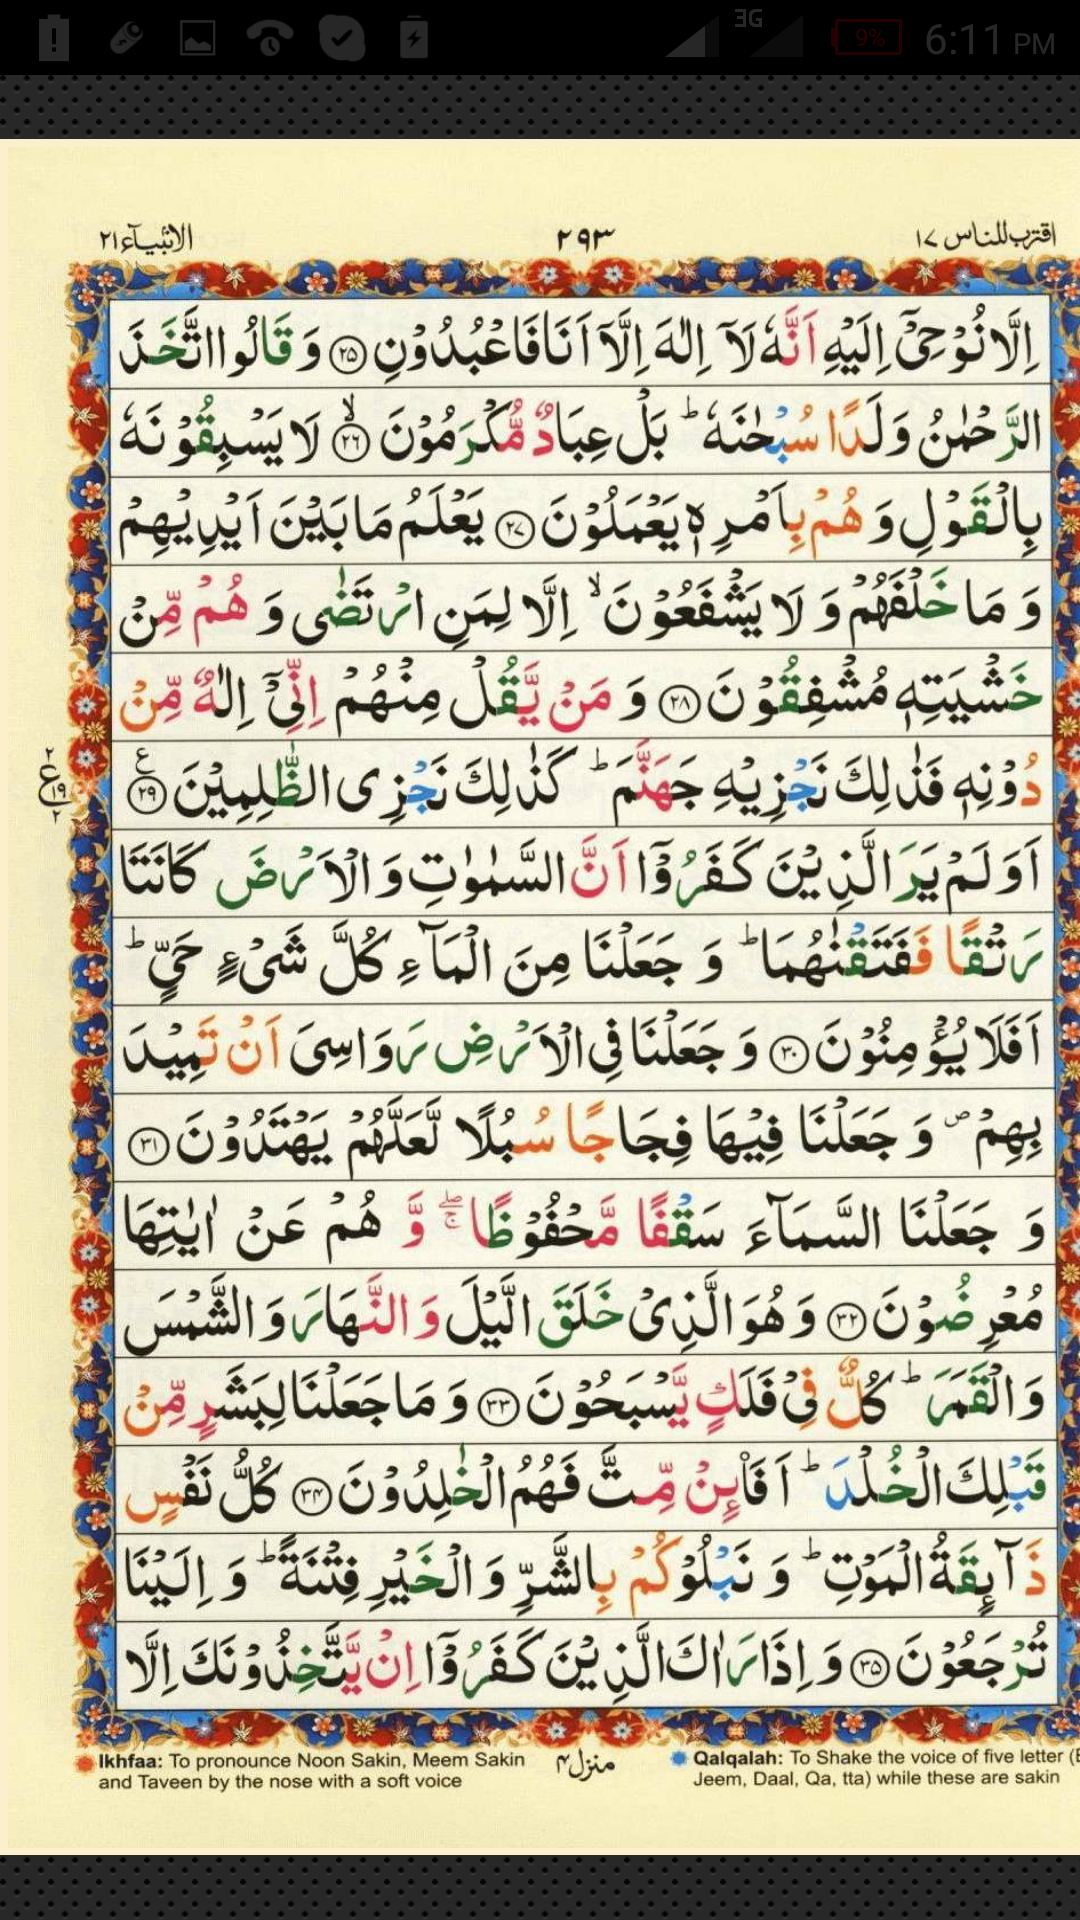 3G 9% 6:11 PM
اقترب للناس ١٧ ٢٩٣ الانبیآء ٢١
اِلَّا نُوْحِیْۤ اِلَیْهِ اَنَّهٗ لَاۤ اِلٰهَ اِلَّاۤ اَنَا فَاعْبُدُوْنِ ﴿۲۵﴾ وَ قَالُوا اتَّخَذَ
الرَّحْمٰنُ وَلَدًا سُبْحٰنَهٗ ؕ بَلْ عِبَادٌ مُّكْرَمُوْنَ ﴿۲۶﴾ۙ لَا یَسْبِقُوْنَهٗ
بِالْقَوْلِ وَ هُمْ بِاَمْرِهٖ یَعْمَلُوْنَ ﴿۲۷﴾ یَعْلَمُ مَا بَیْنَ اَیْدِیْهِمْ
وَ مَا خَلْفَهُمْ وَ لَا یَشْفَعُوْنَ ۙ اِلَّا لِمَنِ ارْتَضٰی وَ هُمْ مِّنْ
خَشْیَتِهٖ مُشْفِقُوْنَ ﴿۲۸﴾ وَ مَنْ یَّقُلْ مِنْهُمْ اِنِّیْۤ اِلٰهٌ مِّنْ
دُوْنِهٖ فَذٰلِكَ نَجْزِیْهِ جَهَنَّمَ ؕ كَذٰلِكَ نَجْزِی الظّٰلِمِیْنَ ﴿۲۹﴾ ع
٢ ع ١٩ ٢
اَوَ لَمْ یَرَ الَّذِیْنَ كَفَرُوْۤا اَنَّ السَّمٰوٰتِ وَ الْاَرْضَ كَانَتَا
رَتْقًا فَفَتَقْنٰهُمَا ؕ وَ جَعَلْنَا مِنَ الْمَآءِ كُلَّ شَیْءٍ حَیٍّ ؕ
اَفَلَا یُؤْمِنُوْنَ ﴿۳۰﴾ وَ جَعَلْنَا فِی الْاَرْضِ رَوَاسِیَ اَنْ تَمِیْدَ
بِهِمْ ۪ وَ جَعَلْنَا فِیْهَا فِجَاجًا سُبُلًا لَّعَلَّهُمْ یَهْتَدُوْنَ ﴿۳۱﴾
وَ جَعَلْنَا السَّمَآءَ سَقْفًا مَّحْفُوْظًا ۖۚ وَّ هُمْ عَنْ اٰیٰتِهَا
مُعْرِضُوْنَ ﴿۳۲﴾ وَ هُوَ الَّذِیْ خَلَقَ الَّیْلَ وَ النَّهَارَ وَ الشَّمْسَ
وَ الْقَمَرَ ؕ كُلٌّ فِیْ فَلَكٍ یَّسْبَحُوْنَ ﴿۳۳﴾ وَ مَا جَعَلْنَا لِبَشَرٍ مِّنْ
قَبْلِكَ الْخُلْدَ ؕ اَفَا۠ئِنْ مِّتَّ فَهُمُ الْخٰلِدُوْنَ ﴿۳۴﴾ كُلُّ نَفْسٍ
ذَآئِقَةُ الْمَوْتِ ؕ وَ نَبْلُوْكُمْ بِالشَّرِّ وَ الْخَیْرِ فِتْنَةً ؕ وَ اِلَیْنَا
تُرْجَعُوْنَ ﴿۳۵﴾ وَ اِذَا رَاٰكَ الَّذِیْنَ كَفَرُوْۤا اِنْ یَّتَّخِذُوْنَكَ اِلَّا
منزل ٤
Ikhfaa: To pronounce Noon Sakin, Meem Sakin
and Taveen by the nose with a soft voice
Qalqalah: To Shake the voice of five letter (
Jeem, Daal, Qa, tta) while these are sakin